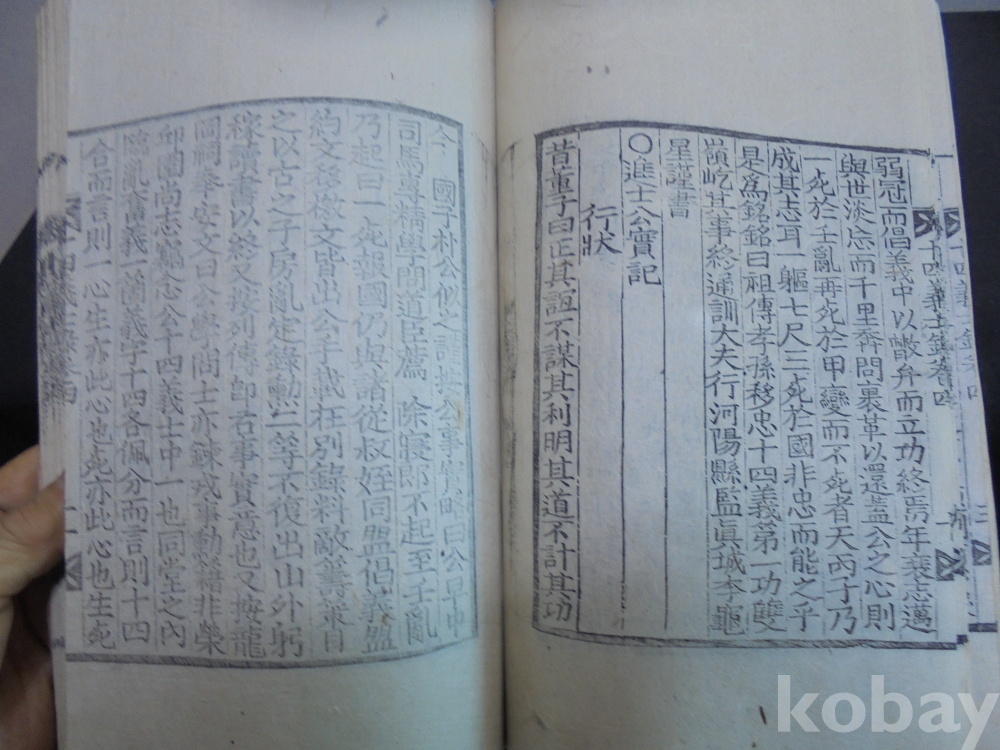 弱冠而倡義中以皦弁而立功終焉年衰志邁
與世淡忘而千里奔問裹革以還盖公之心則
一死於壬亂再死於甲變而不死者天丙子乃
成其志耳一軀七尺三死於國非忠而能之乎
是爲銘銘曰祖傳孝孫移忠十四義第一功雙
嶺屹其事終通訓大夫行河陽縣監眞城李龜
星謹書
○進士公實記
行狀
昔董子曰正其誼不謀其利明其道不計其功
今 國子朴公似之謹按公事實略曰公早中
司馬專橋學問道臣薦 除寢郎不起至壬亂
乃起曰一死報國仍與諸從叔姪同盟倡義盟
約文移檄文皆出公手載在別錄料敵籌衆自
之以古之子房亂定錄勳二等不復出山外躬
稼讀書以終又按列傳卽名事實意也又按龍
岡嗣奉安文曰公學問士亦鍊戎事勳籍非榮
邱園尚志竊念公十四義士中一也同堂之內
臨亂奮義一箇義字十四各佩分而言則十四
合而言則一心生亦此心也死亦此心也生死
十四義士錄卷四
kobay